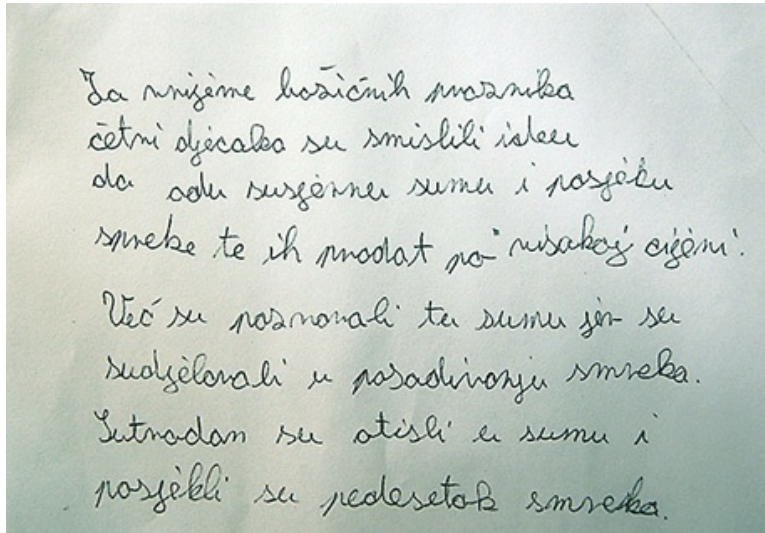 Za vrijeme božićnih praznika
četri dječaka su smislili ideu
da odu susjednu sumu i posjeku
smreke te ih prodat po visakoj cijeni.
Već su poznavali tu sumu jer su
sudjelovali u posađivanju smreka.
Sutradan su otisli u sumu i
posjekli su pedesetak smreka.